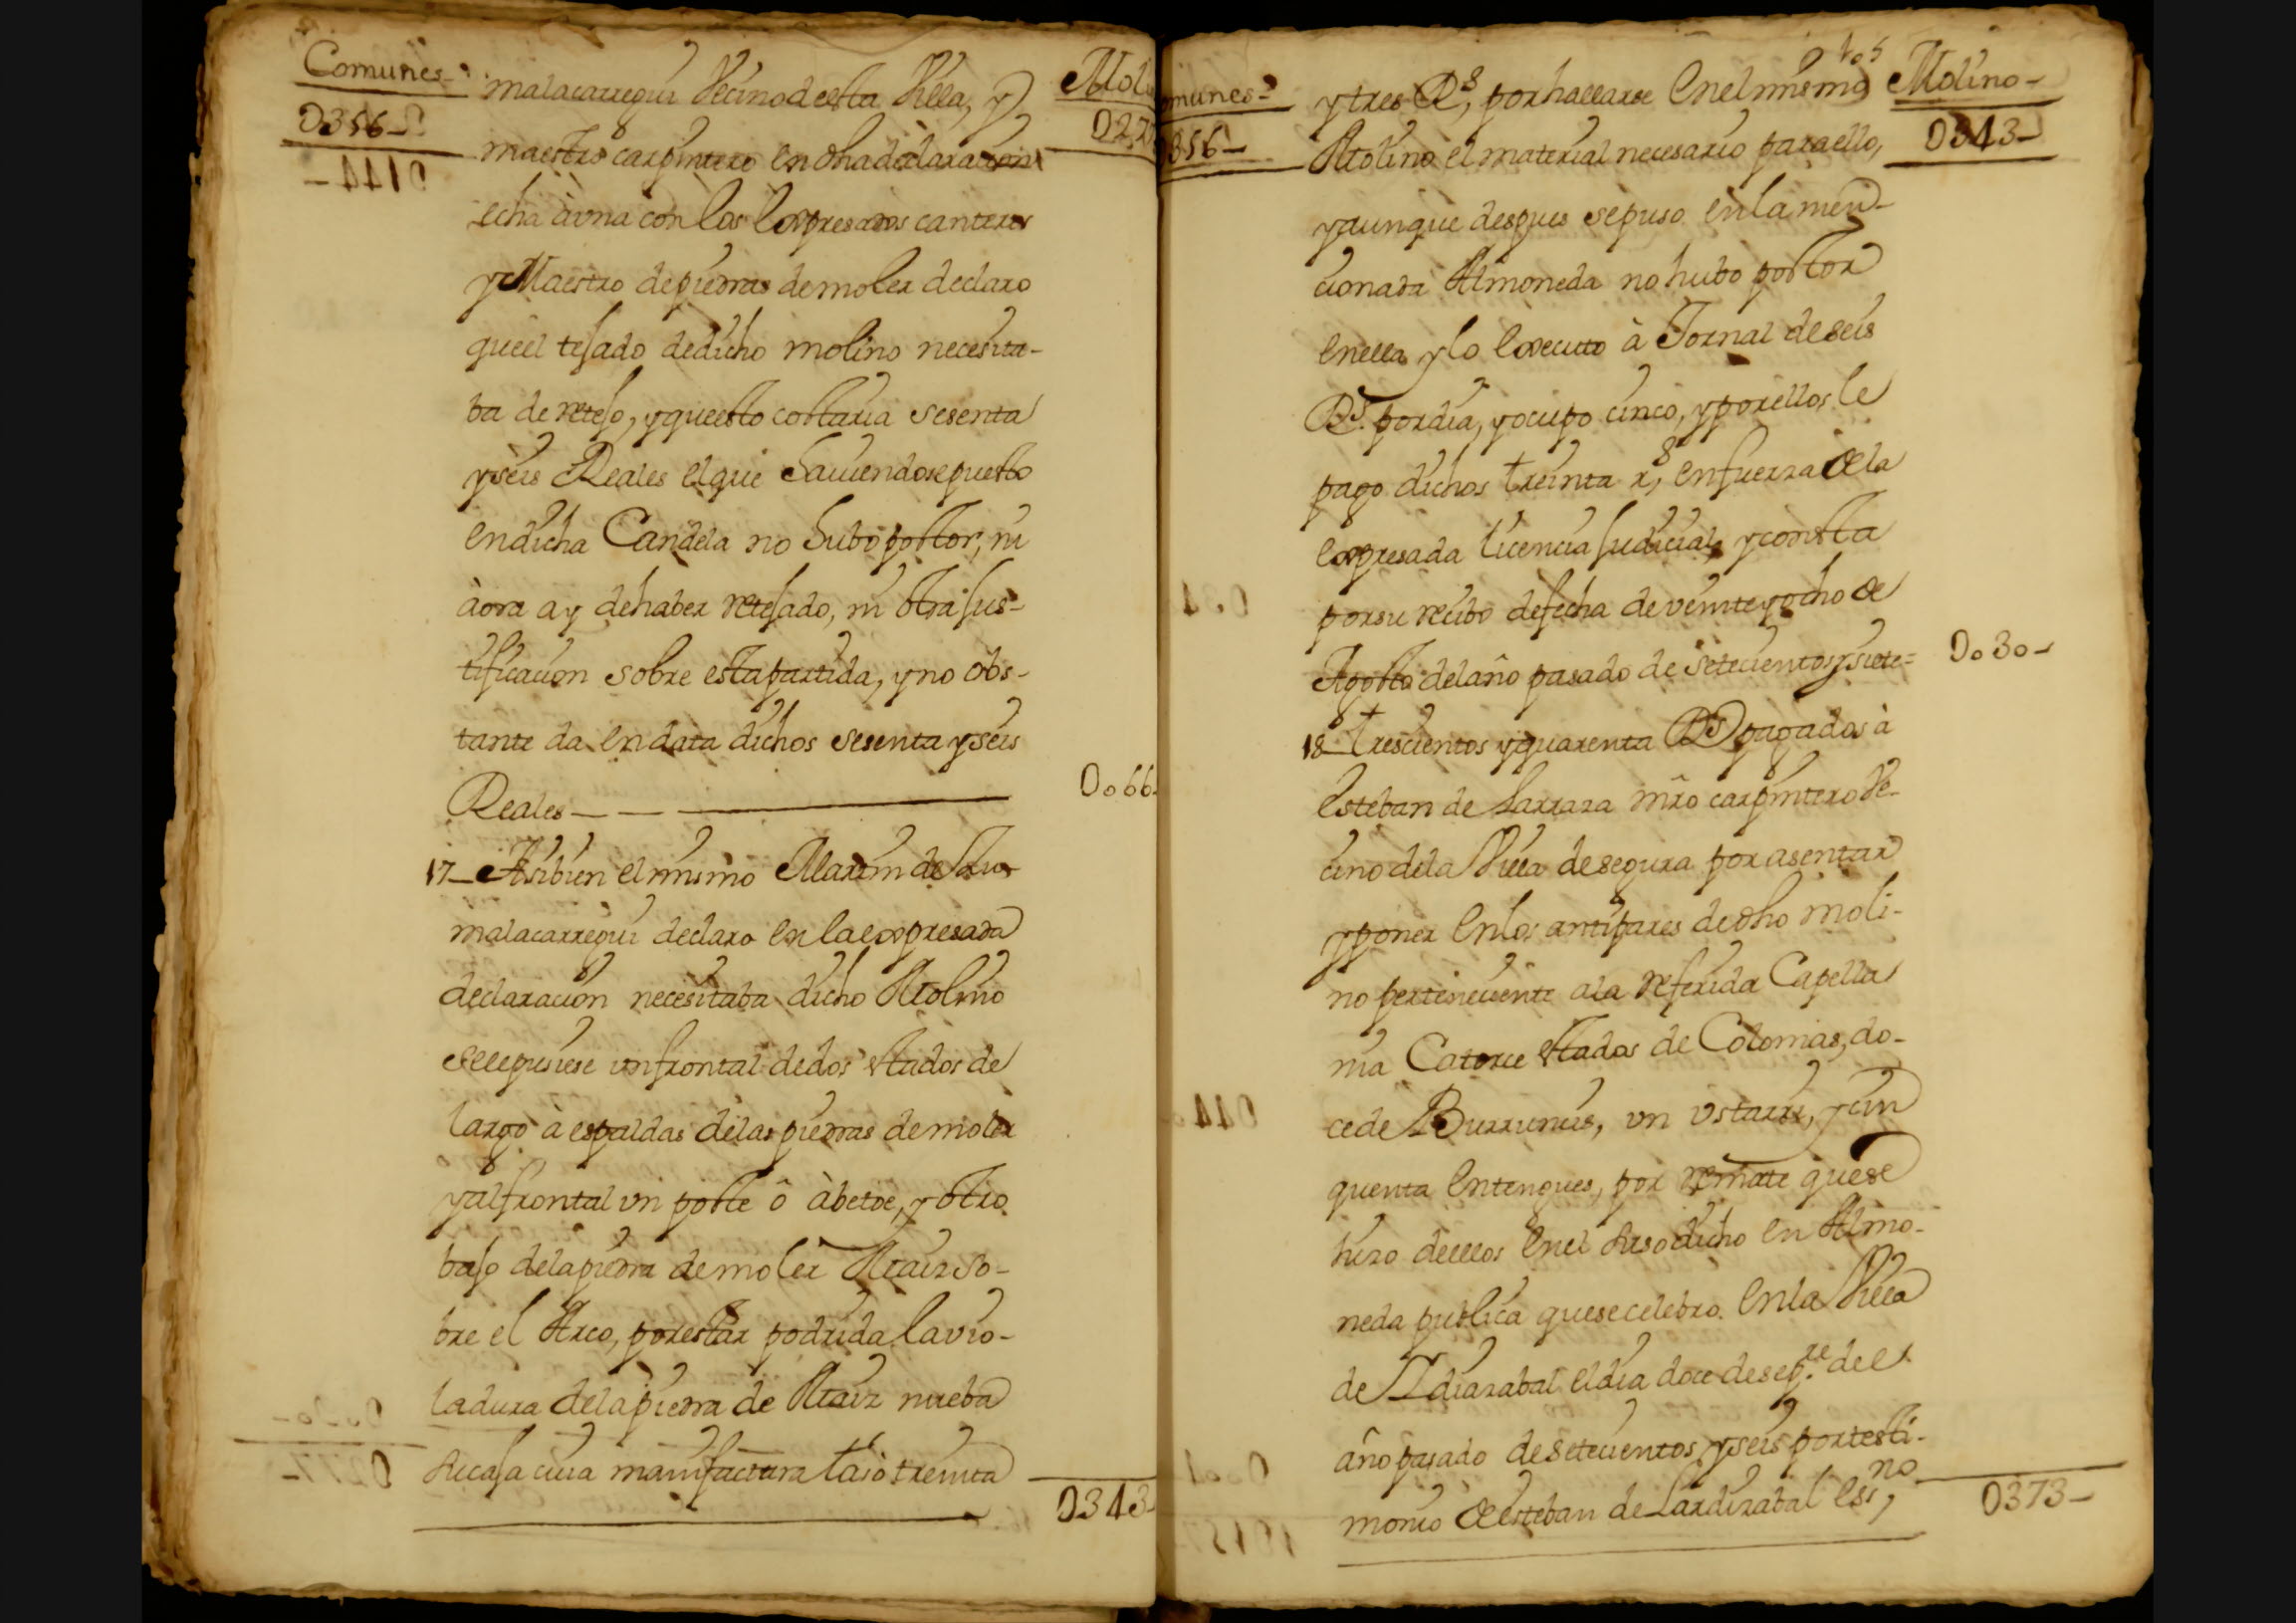 Comunes-
0356-
malacarregui Vecino de esta Villa, y
maestro carpintero en dha declaracion
echa à vna con los expresados canteros
y Maestro de piedras de moler declaro
que el tejado de dicho molino necesita-
ba de retejo, y que esto costaria sesenta
y seis Reales el que haviendose puesto
en dicha Candela no hubo postor, ni
àora ay de haber retejado, ni otra jus-
tificacion sobre esta partida, y no obs-
tante da en data dichos sesenta y seis
Reales
17- Asibien el mismo Martin de
malacarregui declaro en la expresada
declaracion necesitaba dicho Molino
se le pusiese un frontal de dos estados de
largo à espaldas de las piedras de moler
y al frontal vn poste ô àbetoe, y otro
bajo de la piedra de moler Maiz so-
bre el Arco, por estar podrida la vio-
ladura de la piedra de Maiz nueba
su caja cuia manifactura tasò treinta
Mol
0066-
0343-
munes-
356-
y tres Rs, por hallarse en el mismo
Molino el material necesario para ello,
y aunque despues se puso en la men-
cionada Almoneda no hubo postor
en ella y lo executo à Jornal de seis
Rs. por dia, y ocupo cinco, y por ellos le
pago dichos treinta rs, en fuerza de la
expresada licencia judicial, y consta
por su recibo de fecha de veinte y ocho de
Agosto del año pasado de setecientos y siete=
18- Trescientos y quarenta Rs pagados à
Esteban de Larraza mro carpintero Ve-
cino de la Villa de segura por asentar
y poner en los antipares de dho moli-
no perteneciente a la referida Capella
nia Catorce estados de Colomas, do-
ce de Burruncis, vn vstarri, y cin
quenta entengues, por remate que se
hizo de ellos en el susodicho en Almo-
neda publica que se celebro en la Villa
de Ydiazabal el dia doce de sepre. del
año pasado de setecientos y seis por testi-
monio de esteban de Lardizabal essno,
Molino-
0343-
0030-
0373-